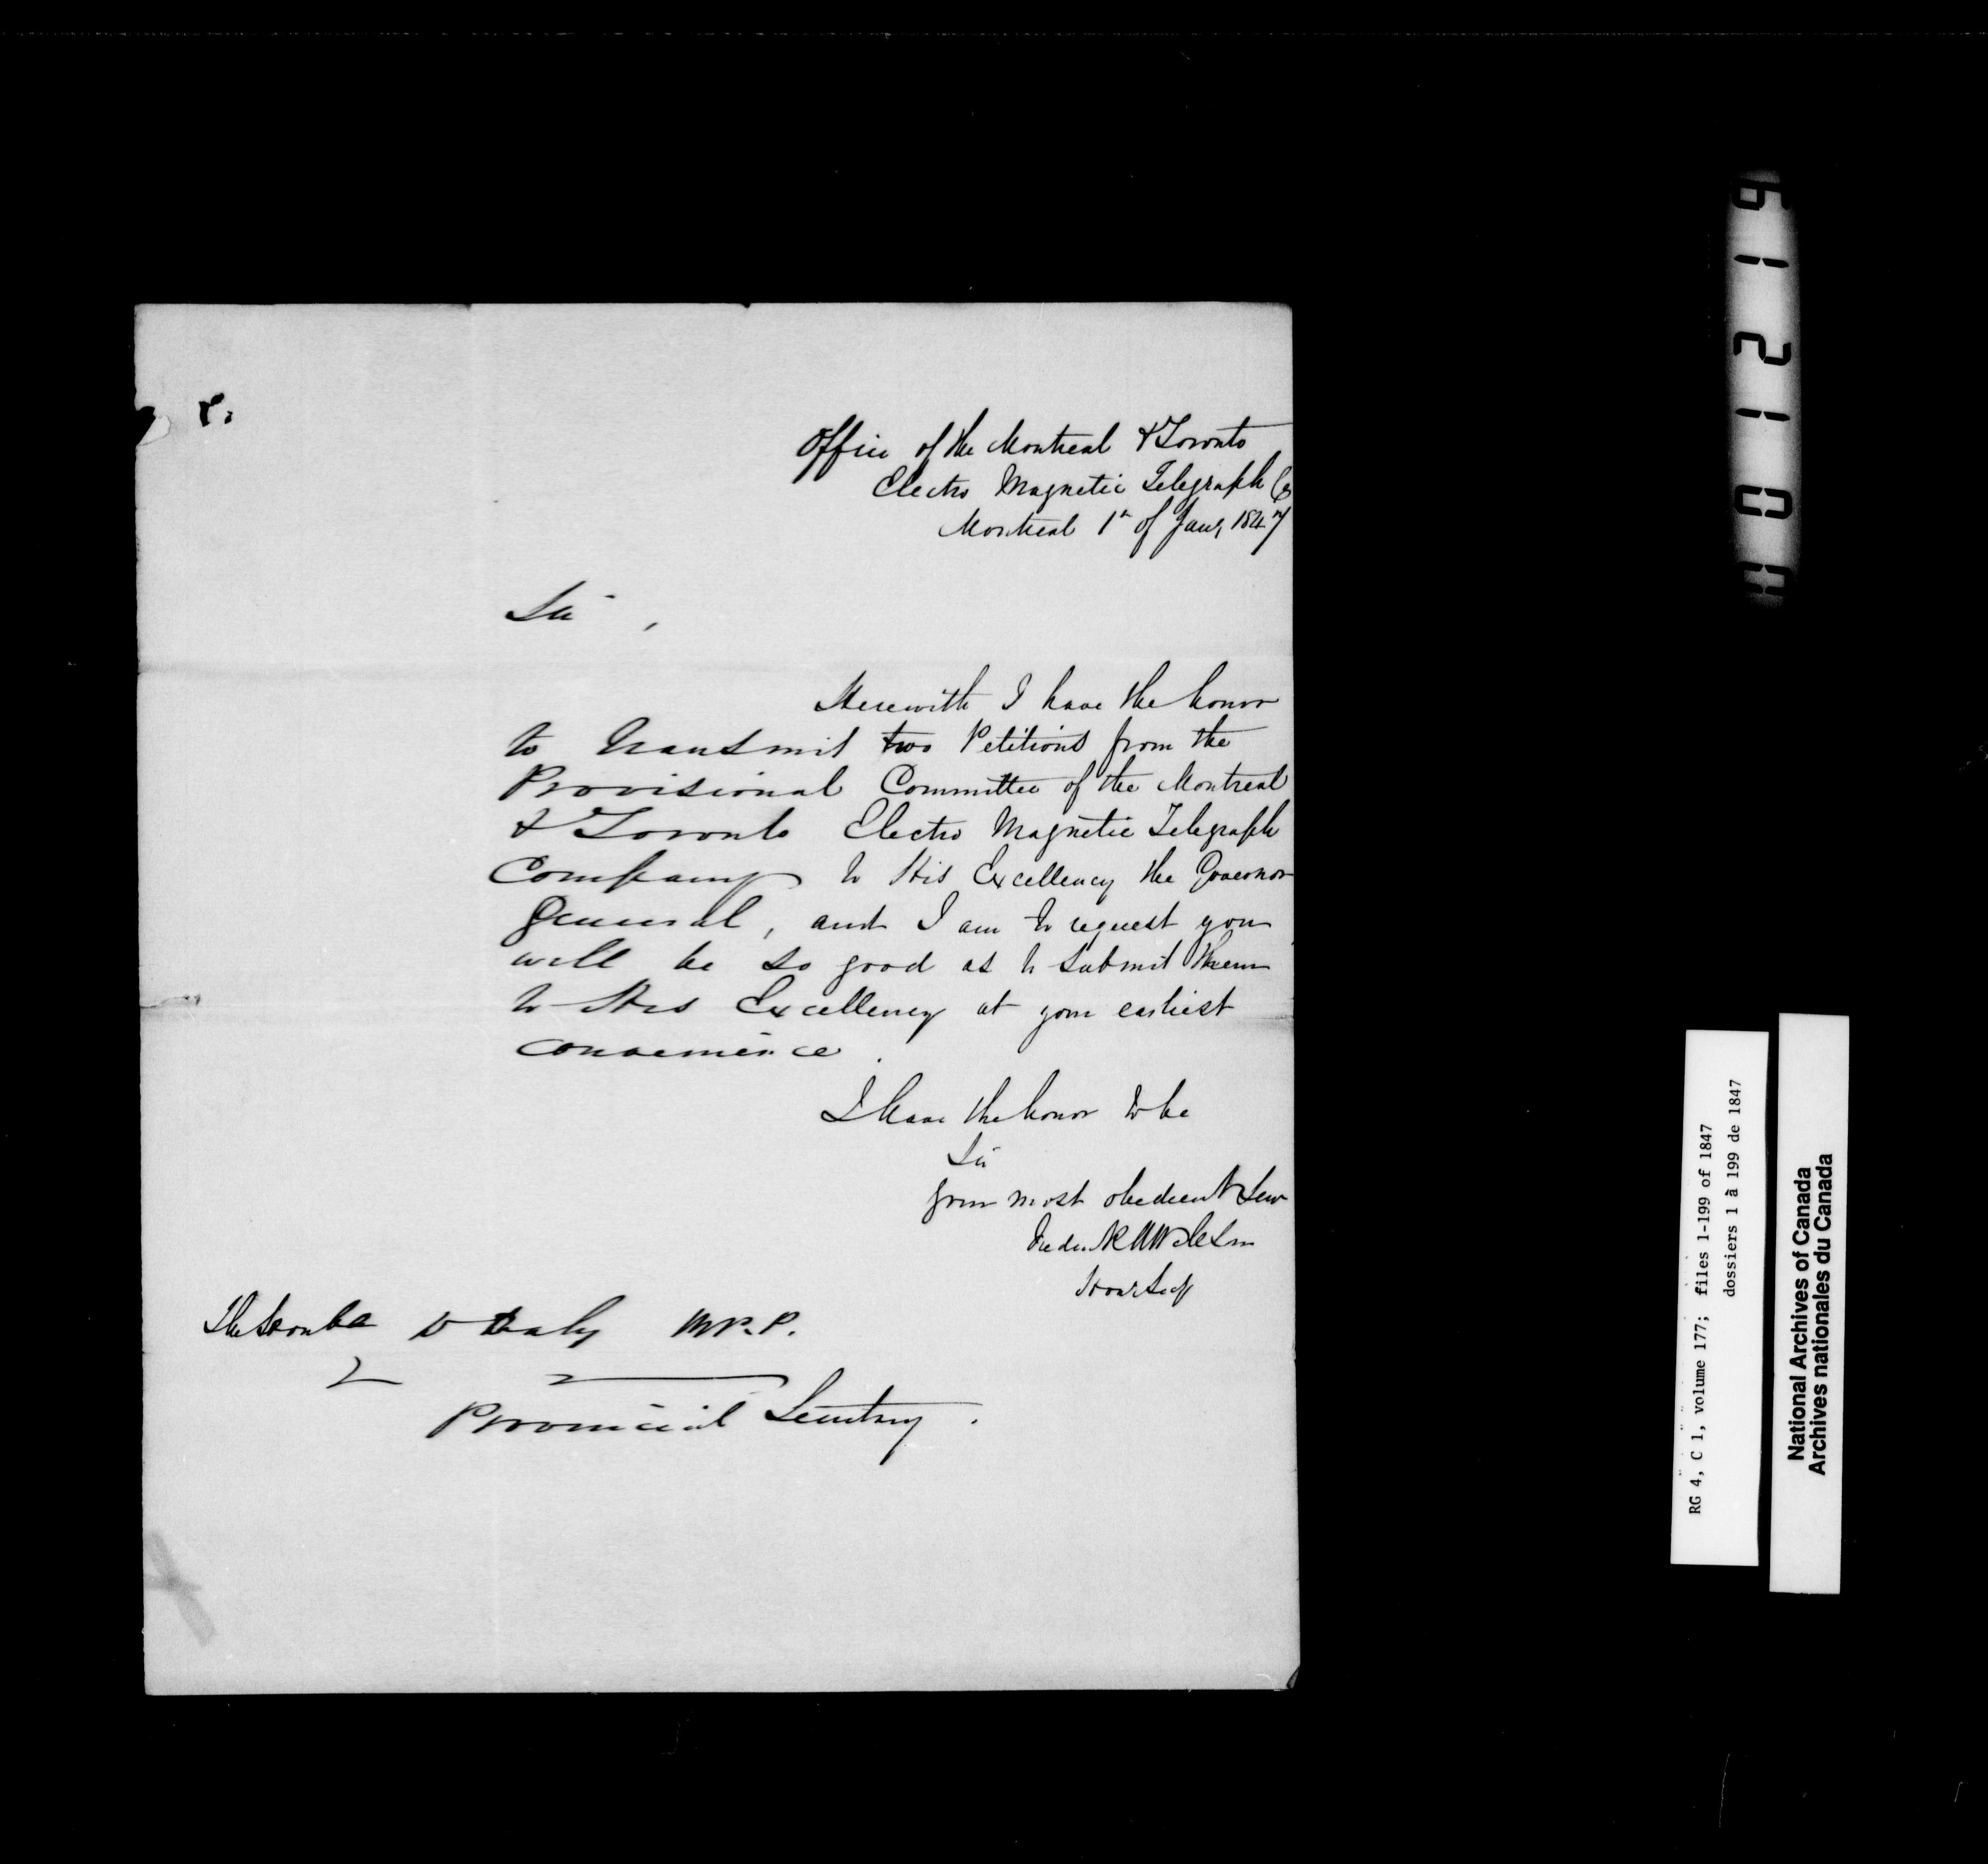 Office of the Montreal & Toronto
Electro Magnetic Telegraph Co
Montreal 1st of Jany 1847
Sir,
Herewith I have the honor
to transmit two Petitions from the
Provisional Committee of the Montreal
& Toronto Electro Magnetic Telegraph
Company to His Excellency the Governor
General, and I am to request you
will be so good as to submit them
to His Excellency at your earliest
convenience.
I have the honor to be
Sir
your most obedient Serv
Hony Secy
The Honble D Daly M.P.P.
Provincial Secretary.
RG 4, C 1, volume 177; files 1-199 of 1847
dossiers 1 à 199 de 1847
National Archives of Canada
Archives nationales du Canada